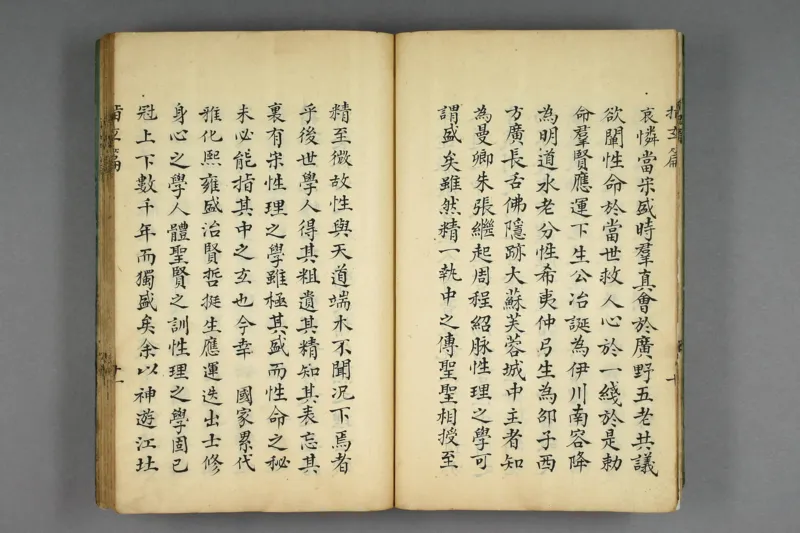 指玄篇
哀憐當宋盛時羣真會於廣野五老共議
欲闡性命於當世救人心於一綫於是勅
命羣賢應運下生公冶誕為伊川南容降
為明道水老分性希夷仲弓生為邵子西
方廣長舌佛隱跡大蘇芙蓉城中主者知
為曼卿朱張繼起周程紹脉性理之學可
謂盛矣雖然精一執中之傳聖聖相授至
精至微故性與天道端木不聞况下焉者
乎後世學人得其粗遺其精知其表忘其
裏有宋性理之學雖極其盛而性命之秘
未必能指其中之玄也今幸 國家累代
雅化熙雍盛治賢哲挺生應運迭出士修
身心之學人體聖賢之訓性理之學固已
冠上下數千年而獨盛矣余以神遊江址
指玄篇
十一